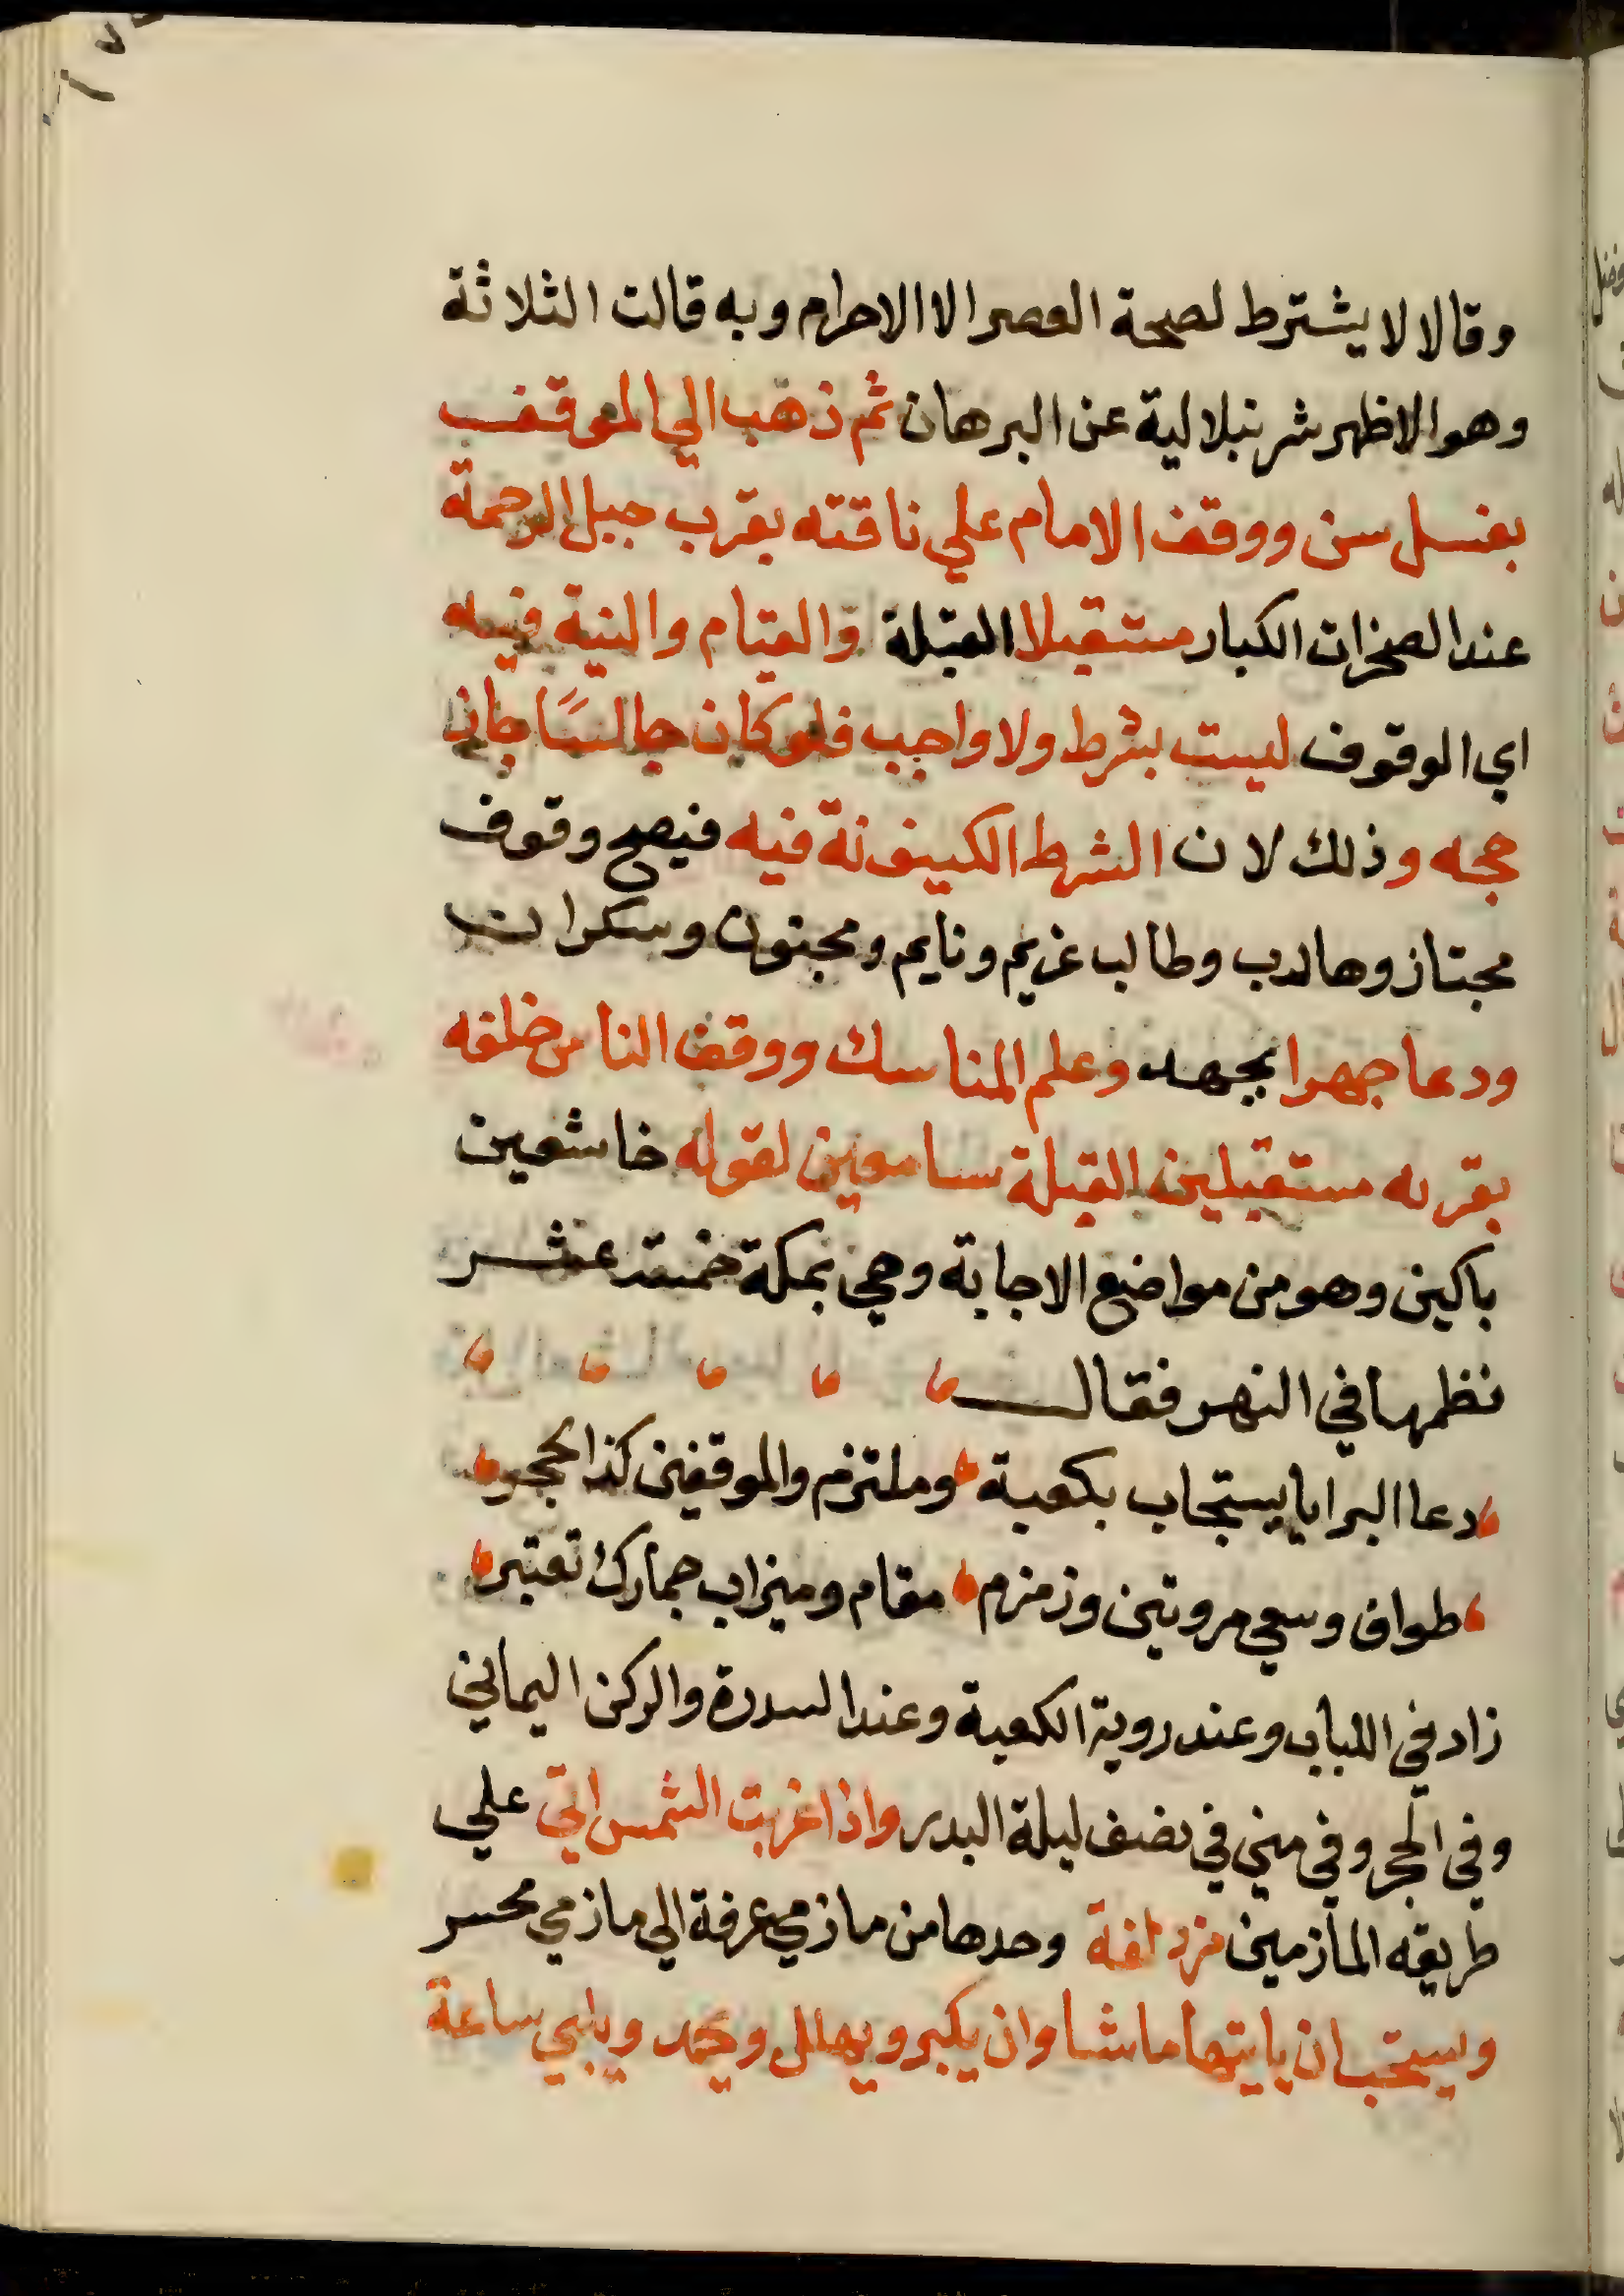 وقالا لا يشترط لصحة العصر الا الاحرام وبه قالت الثلاثة
وهو الاظهر شرنبلالية عن البرهان ثم ذهب الي الموقف
بغسل سن ووقف الامام علي ناقته بقرب جبل الرحمة
عند الصخرات الكبار مستقبلا القبلة والقيام والنية فيه
اي الوقوف ليست بشرط ولا واجب فلو كان جالسًا جاز
حجه وذلك لان الشرط الكينونة فيه فيصح وقوف
مجتاز وهارب وطالب غريم ونايم ومجنون وسكران
ودعا جهرا بجهد وعلم المناسك ووقف الناس خلفه
بقربه مستقبلين القبلة سامعين لقوله خاشعين
باكين وهو من مواضع الاجابة وهي بمكة خمسة عشر
نظمها في النهر فقال
دعا البرايا يستجاب بكعبة وملتزم والموقفين كذا الحجر
طواف وسعي مروتين وزمزم مقام وميزاب جمارك تعتبر
زاد في اللباب وعند روية الكعبة وعند السدرة والركن اليماني
وفي الحجر وفي مني في نصف ليلة البدر واذا غربت الشمس اتي علي
طريقه المأزمين مزدلفة وحدها من مازمي عرفة الي مازمي محسر
ويستحب ان ياتيها ماشا وان يكبر ويهلل ويحمد ويلبي ساعة